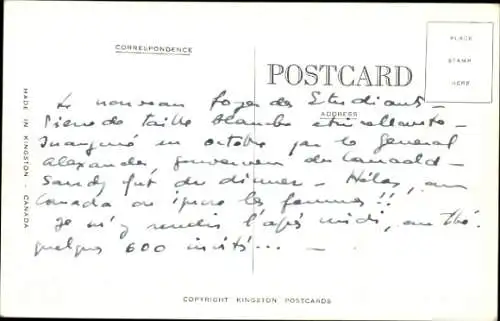 CORRESPONDENCE
POSTCARD
PLACE
STAMP
HERE
ADDRESS
MADE IN KINGSTON - CANADA
Le nouveau foyer des Etudiants -
Pierre de taille blanche étincellante -
Inauguré en octobre par le General
Alexander, gouverneur du Canada -
Sandy fut du diner - Hélas, au
Canada on ignore les femmes !!
Je m'y rendis l'après midi, au thé.
quelques 600 invités... -
COPYRIGHT KINGSTON POSTCARDS